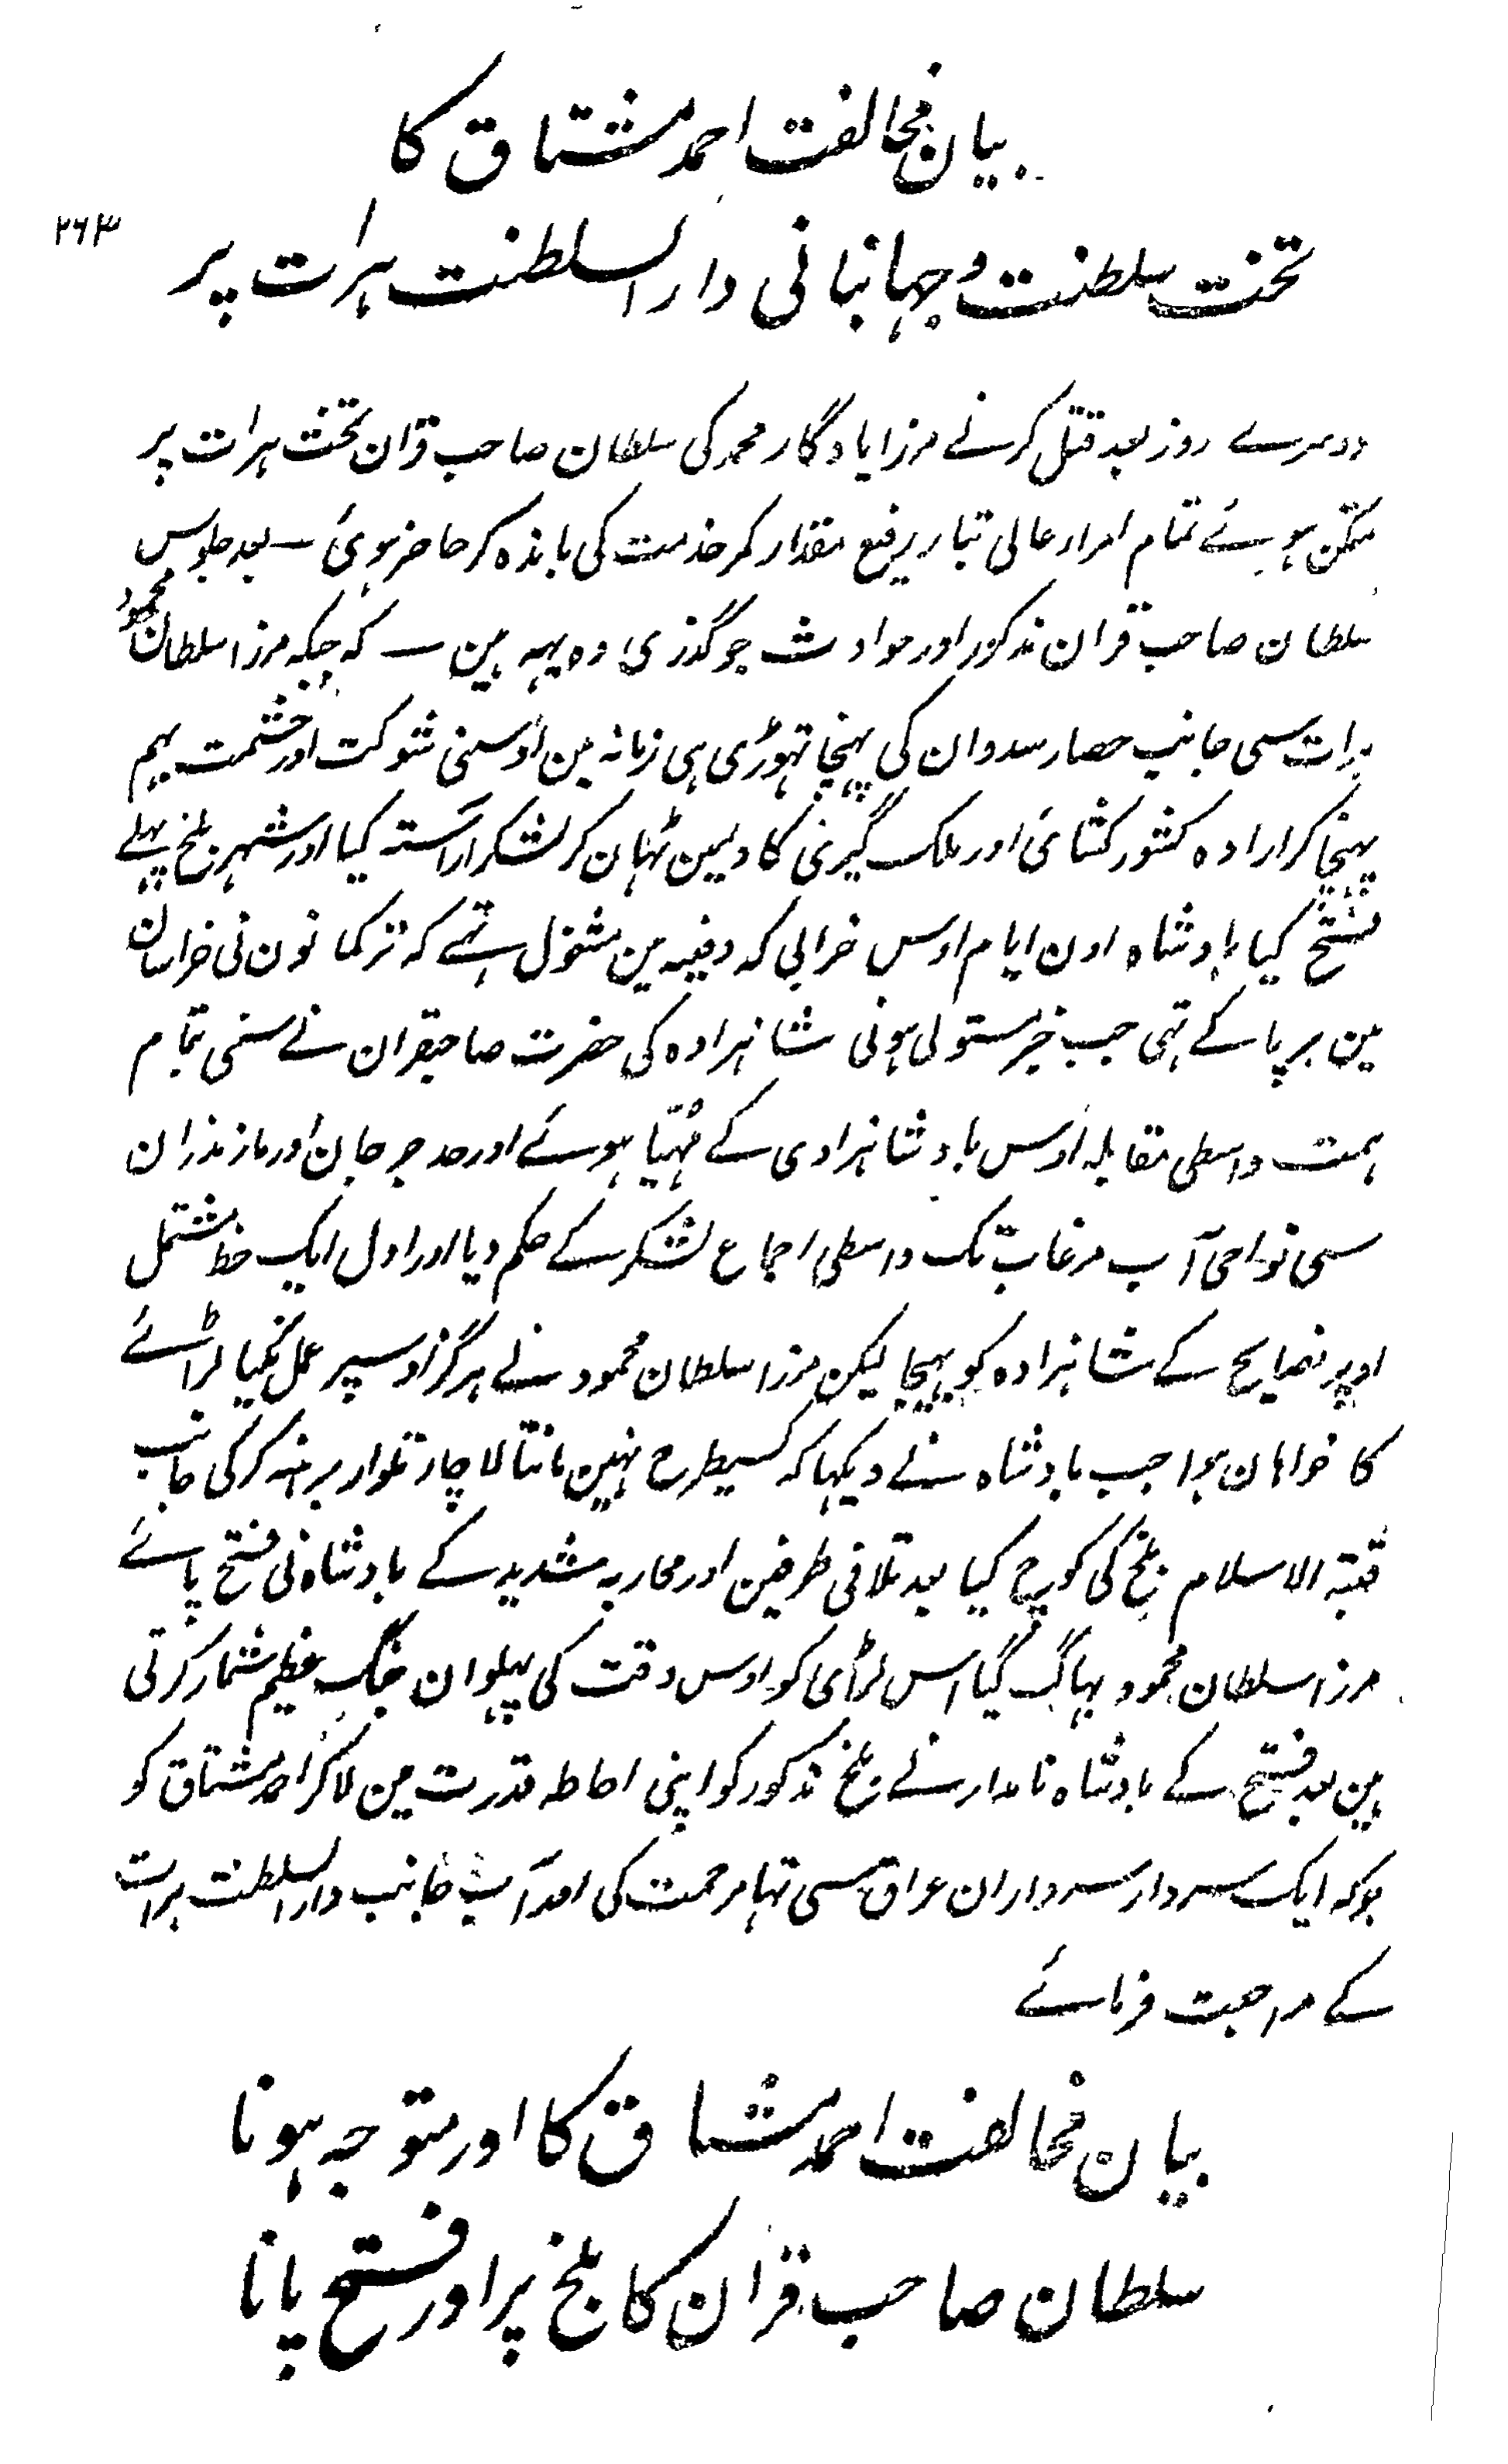 بیان مخالفت احمد مشتاق کا
۲۶۳
تخت سلطنت و جہانبانی دار السلطنت ہرات پر
دوسرے روز بعد قتل کرنے مرزا یادگار محمد کی سلطان صاحب قران تخت ہرات پر
متمکن ہوئے تمام امراء عالی تبار رفیع مقدار کمر خدمت کی باندہ کر حاضر ہوئی ــ بعد جلوس
سلطان صاحب قران مذکور اور حوادث جو گذری وہ یہہ ہین ــ کہ جبکہ مرزا سلطان محمود
ہرات سی جانب حصار سدوان کی پہنچا تہوڑی ہی زمانہ مین اوسنی شوکت اور حشمت بہم
پہنچا کر ارادہ کشور کشائی اور ملک گیری کا دلمین ٹہان کر لشکر آراستہ کیا اور شہر بلخ پہلے
فتح کیا بادشاہ اون ایام اوس خرابی کہ دفیہ مین مشغول تہے کہ ترکمانون نی خراسان
مین برپا کے تہی جب خبر مستولی ہونی شاہزادہ کی حضرت صاحبقران نے سنی تمام
ہمت واسطی مقابلہ اوس بادشاہزادی کے مُہیّا ہوئے اور حد جرجان اور مازندران
سی نواحی آب مرغاب تک واسطی اجماع لشکر کے حکم دیا اور اول ایک خط مشتمل
اوپر نصایح کے شاہزادہ کو بہیجا لیکن مرزا سلطان محمود نے ہرگز اوسپر عمل نکیا لڑائے
کا خواہان ہوا جب بادشاہ نے دیکہا کہ کسیطرح نہین مانتا لاچار تلوار برہنہ کر کی جانب
قبتہ الاسلام بلخ کی کوچ کیا بعد تلاقی طرفین اور محاربہ شدید کے بادشاہ نی فتح پائے
مرزا سلطان محمود بہاگ گیا اس لڑائی کو اوس وقت کی پہلوان جنگ عظیم شمار کرتی
ہین بعد فتح کے بادشاہ نامدار نے بلخ مذکور کو اپنی احاطہ قدرت مین لاکر احمد مشتاق کو
ہوکہ ایک سردار سرداران عراق سی تہا مرحمت کی اور آپ جانب دار السلطنت ہرات
کے مراجعت فرمائے
بیان مخالفت احمد مشتاق کا اور متوجہ ہونا
سلطان صاحب قران کا بلخ پر اور فتح پانا